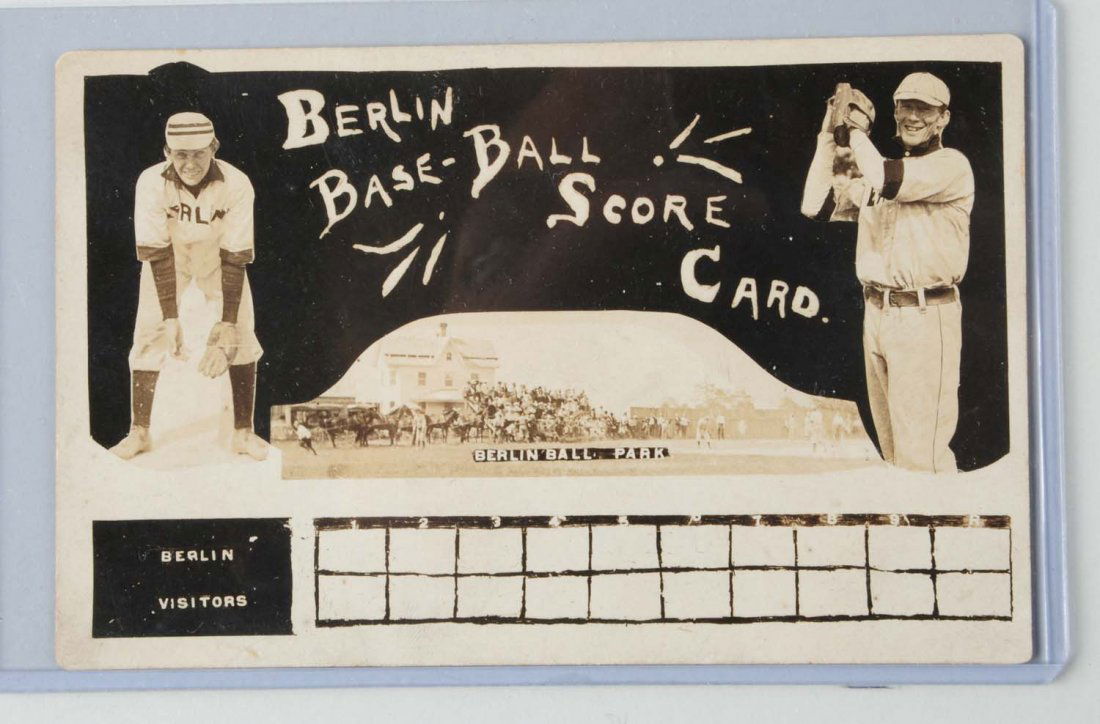 BERLIN
BASE-BALL
SCORE
CARD.
BERLIN
BERLIN BALL. PARK
1 2 3 4 5 6 7 8 9
BERLIN
VISITORS